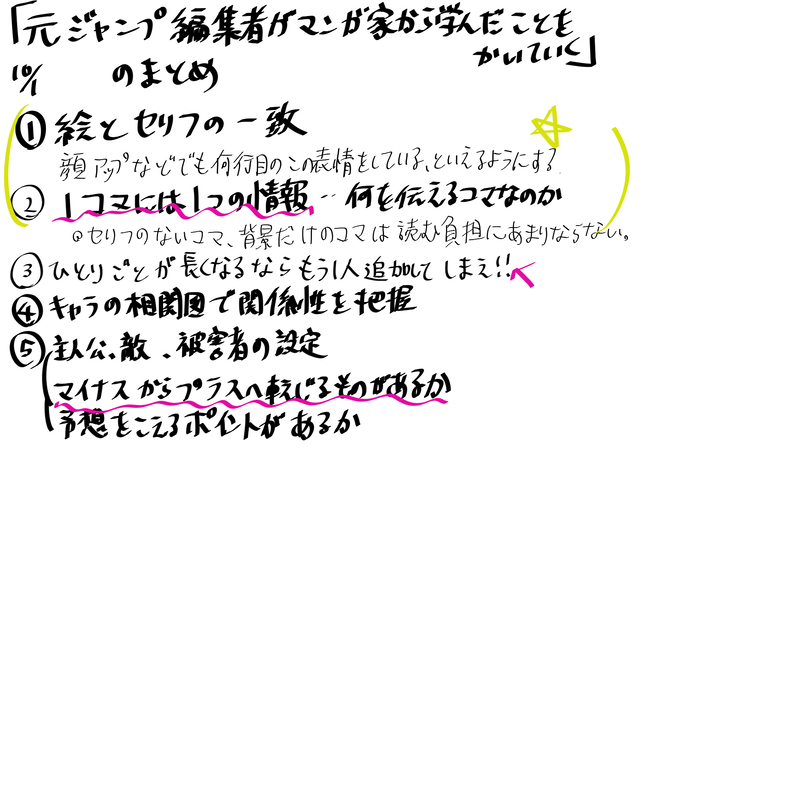 「元ジャンプ編集者がマンガ家から学んだことを
かいていく」
10/1 のまとめ
① 絵とセリフの一致
顔アップなどでも何行目のこの表情をしている、といえるようにする。
② 1コマには1つの情報…何を伝えるコマなのか
◎セリフのないコマ、背景だけのコマは読む負担にあまりならない。
③ ひとりごとが長くなるならもう1人追加してしまえ!!
④ キャラの相関図で関係性を把握
⑤ 主人公、敵、被害者の設定
マイナスからプラスへ転じるものがあるか
予想をこえるポイントがあるか